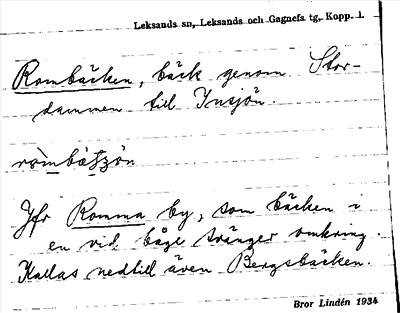 Leksands sn, Leksands och Gagnefs tg, Kopp. l.
Rombäcken, bäck genom Stor-
dammen till Insjön.
Jfr Romma by, som bäcken i
en vid båge svänger omkring.
Kallas nedtill även Bergsbäcken.
Bror Lindén 1934